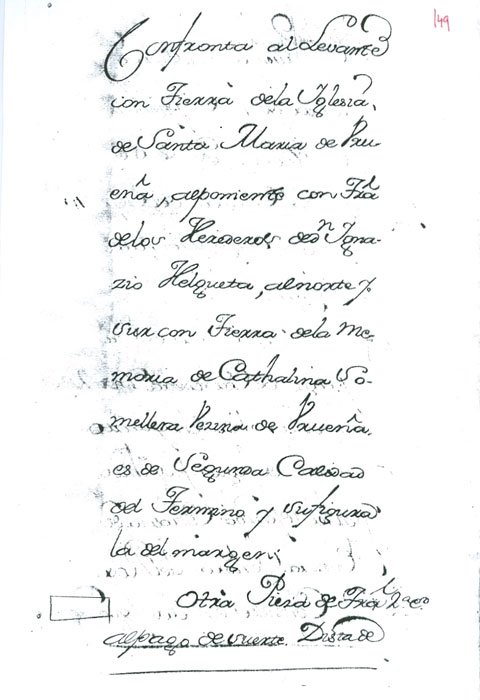 149
Confronta al Levante
con Tierra dela Yglesia,
de Santa Maria de Bru-
eña, alponiente con Tra
delos Herederos den Ygna-
zio Helgueta, alnorte y
sur con Tierra dela Me-
moria de Cathalina So-
mellera Vezina de Brueña.
es de Segunda Calidad
del Termino y sufigura
la del margen;
Otra Pieza de Tra
al pago de Dista de